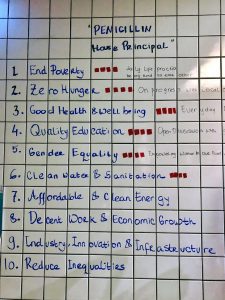 "PENICILLIN
House Principal"
1. End Poverty
2. Zero Hunger On progress with Local
3. Good Health & Well being Everyday
4. Quality Education Open Discussion
5. Gender Equality
6. Clean Water & Sanitation
7. Affordable & Clean Energy
8. Decent Work & Economic Growth
9. Industry, Innovation & Infrastructure
10. Reduce Inequalities